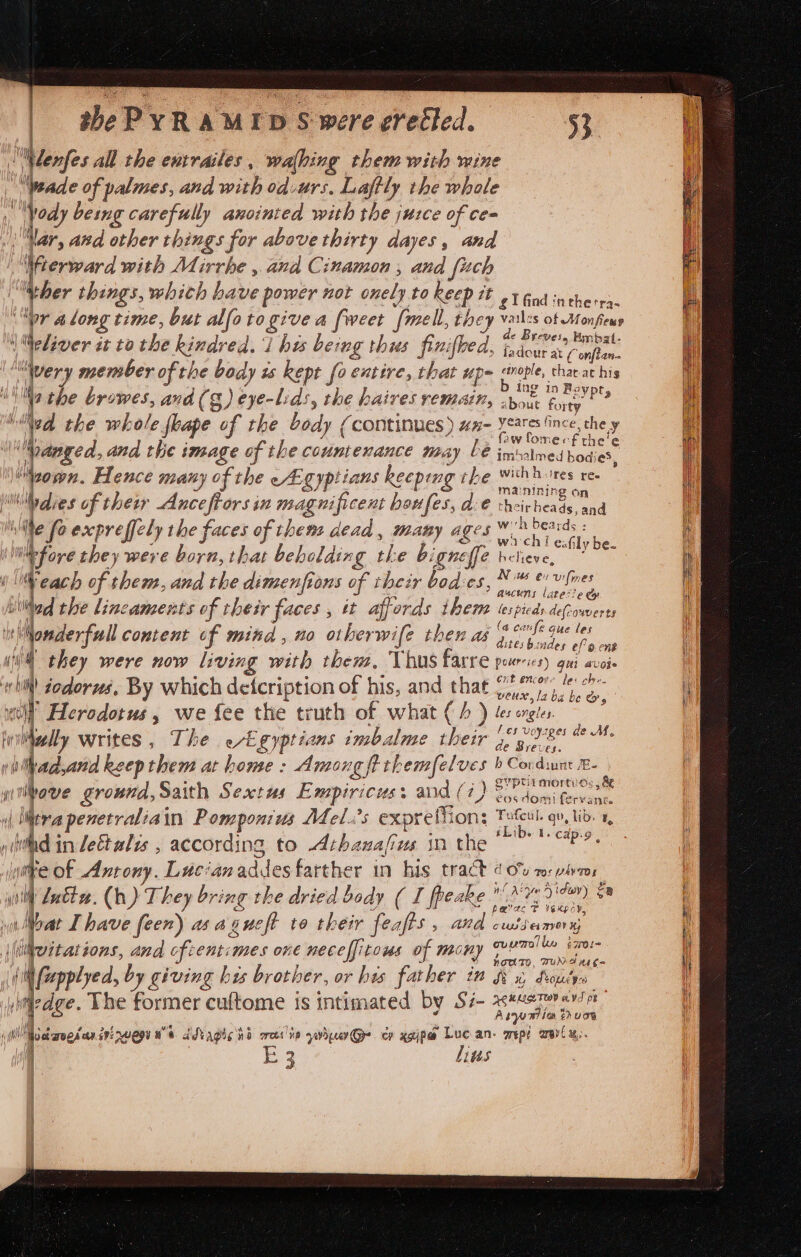 the PYRAMIDS were erected. 53
all the entrailes, waſhing them with wine
made of palmes, and with odours. Laſtly the whole
body being carefully anointed with the juice of ce-
dar, and other things for above thirty dayes, and
afterward with Mirrhe, and Cinamon, and ſuch
other things, which have power not onely to keep it
for a long time, but alſo to give a ſweet ſmell, they
deliver it to the kindred. This being thus finiſhed,
every member of the body is kept ſo entire, that up-
the browes, and (g) eye-lids, the haires remain,
and the whole ſhape of the body (continues) un-
changed, and the image of the countenance may be
known. Hence many of the Ægyptians keeping the
bodies of their Anceſtors in magnificent houſes, doe
ſee ſo expreſſely the faces of them dead, many ages
before they were born, that beholding the bigneſſe
of each of them, and the dimenſions of their bodies,
and the lineaments of their faces, it affords them
wonderfull content of mind, no otherwiſe then as
if they were now living with them. Thus farre
Diodorus. By which deſcription of his, and that
of Herodotus, we ſee the truth of what (h)
writes, The Ægyptians imbalme their
dead, and keep them at home: Amongſt themſelves
above ground, Saith Sextus Empiricus: and (i)
intra penetralia in Pomponius Mela's expreſſion:
and in lectulis, according to Athanaſius in the
life of Antony. Lucian addes farther in his tract
de luctu. (k) They bring the dried body (I ſpeake
what I have ſeen) as a gueſt to their feaſts, and
invitations, and oftentimes one neceſſitous of mony
is ſupplyed, by giving his brother, or his father in
pledge. The former cuſtome is intimated by Si-
E 3 lius
g I find in the tra-
vailes of Monſieur
de Breves, Embaſ-
ſadour at Conſtan-
tinople, that at his
being in Egypt,
about forty
yeares ſince, they
ſaw ſome of theſe
imbalmed bodies,
with haires re-
maining on
their heads, and
with beards:
which I eaſily be-
lieve,
Nous en viſmes
aucuns la teſte &
les pieds deſcouverts
a cauſe que les
dites bandes eſtoent
pourries) qui avoie
ent encore les che-
veux, la barbe &,
les ongles.
Les voyages de M.
de Breves.
h Condiunt Æ-
gyptii mortuos, &
eos domi ſervant.
Tuſcul. qu. lib. 1.
i Lib. 1. cap. 9.